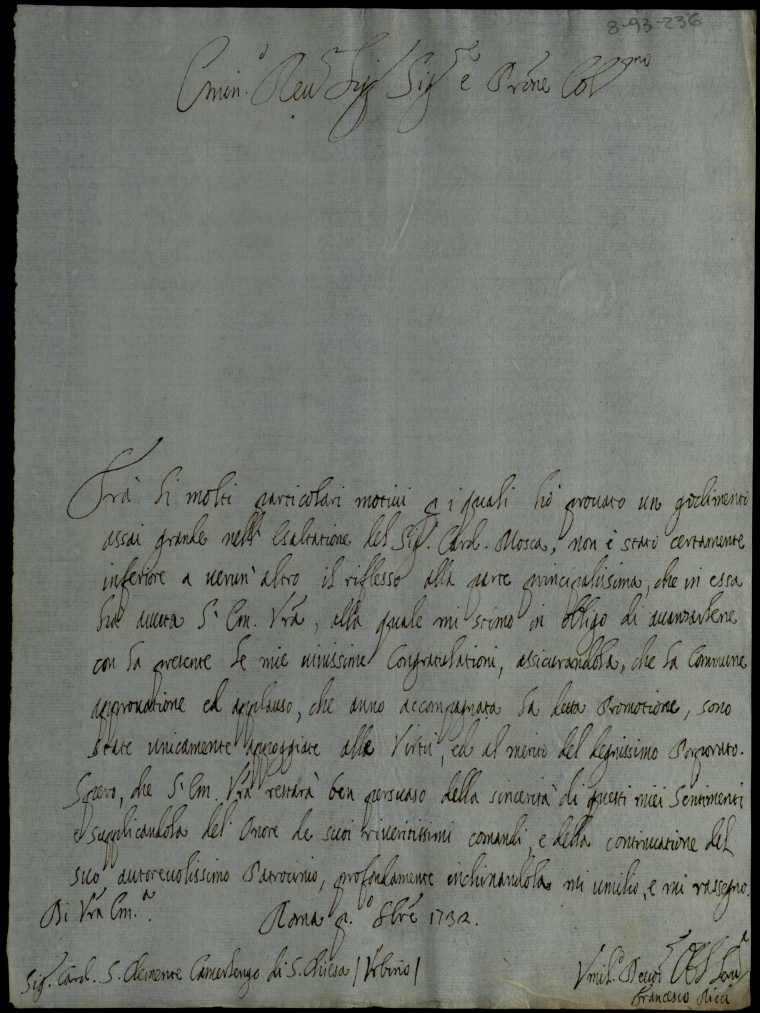 8-93-236
Emin.ᵒ Reuᵐ Sigʳ Sigʳᵉ e Prōne Colᵐᵒ
Frà li molti particolari motiui p i quali hò prouato un godimento
assai grande nell' esaltatione del Sigʳ. Card. Mosca, non è stato certamente
inferiore a uerun' altro il riflesso alla parte principalissima, che in essa
hà auuta Sᵃ Em. Vrā, alla quale mi stimo in obligo di auanzarlene
con la presente le mie uiuissime Congratulationi, assicurandola, che la Commune
approuatione ed applauso, che anno accompagnata la detta Promotione, sono
state unicamente appoggiate alla Virtù, ed al merito del degnissimo Porporato.
Spero, che Sᵃ Em. Vrā restarà ben persuaso della sincerità di questi miei Sentimenti
e supplicandola del' Onore de suoi riueritissimi comandi, e della continuatione del
suo autoreuolissimo Patrocinio, profondamente inchinandola mi umilio, e mi rassegno.
Di Vrā Em.ᵃ
Roma p.ᵒ 8brē 1732.
Sigʳ. Card. S. Clemente Camerlengo di S. Chiesa / Vrbino /
Vmil.ᵒ Deuotᵐᵒ Obl Seruʳᵉ
Francesco Ricci